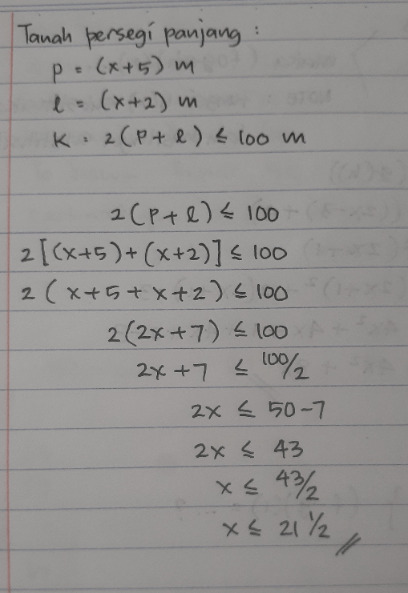 Tanah persegi panjang :
p = (x+5) m
l = (x+2) m
K = 2(P+l) ≤ 100 m
2(P+l) ≤ 100
2[(x+5)+(x+2)] ≤ 100
2(x+5+x+2) ≤ 100
2(2x+7) ≤ 100
2x+7 ≤ 100/2
2x ≤ 50-7
2x ≤ 43
x ≤ 43/2
x ≤ 21 1/2 //